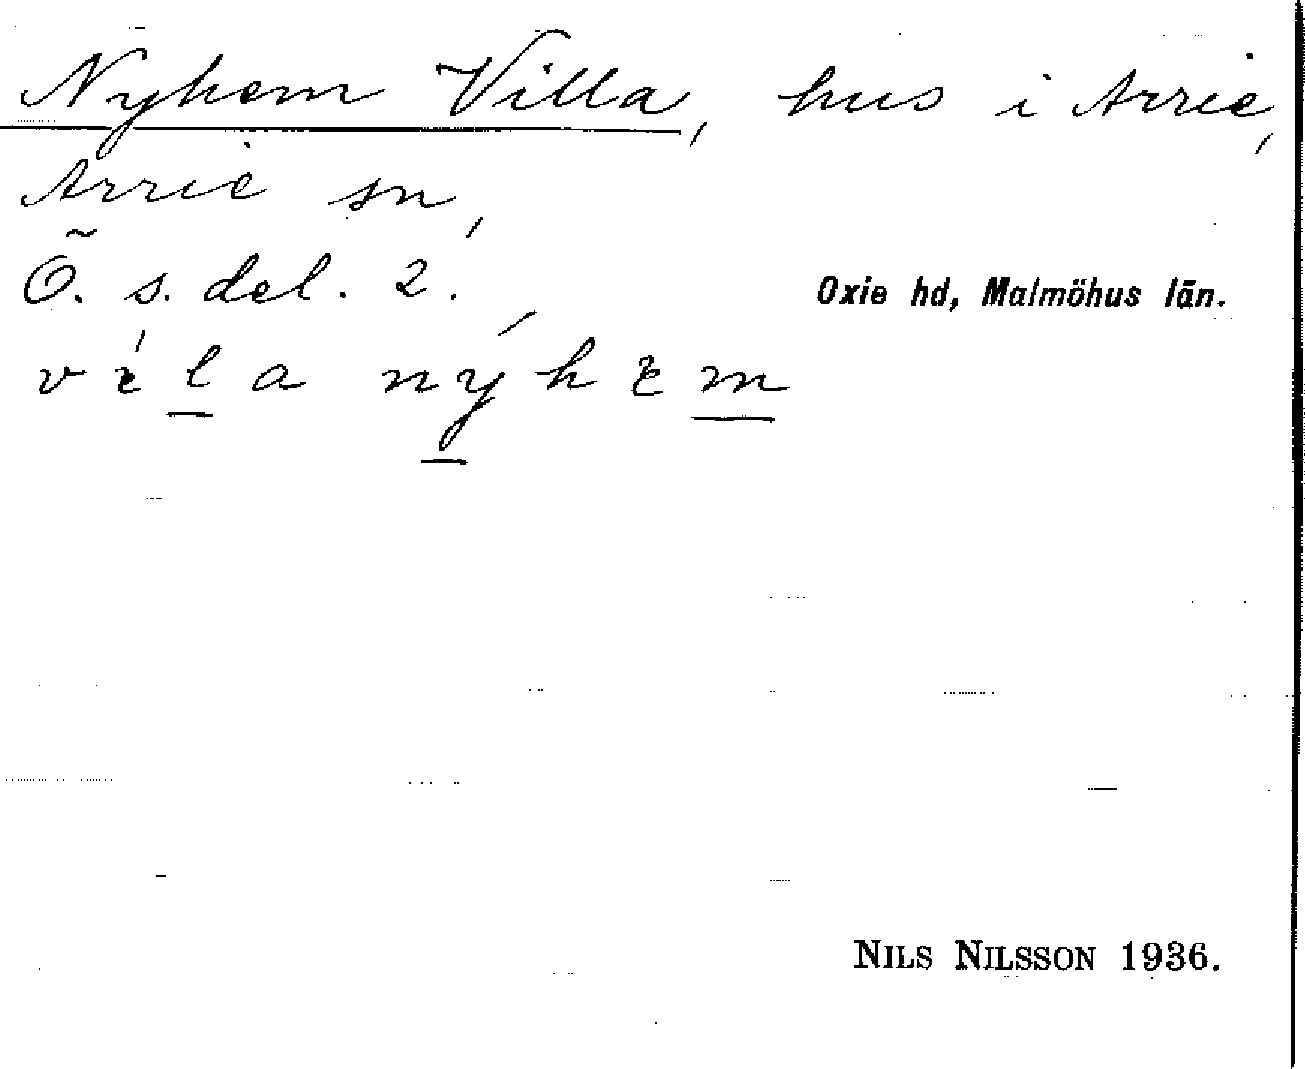 Nyhem Villa, hus i Arrie,
Arrie sn,
Ö. s. del. 2.
Oxie hd, Malmöhus län.
véla nýhem
NILS NILSSON 1936.